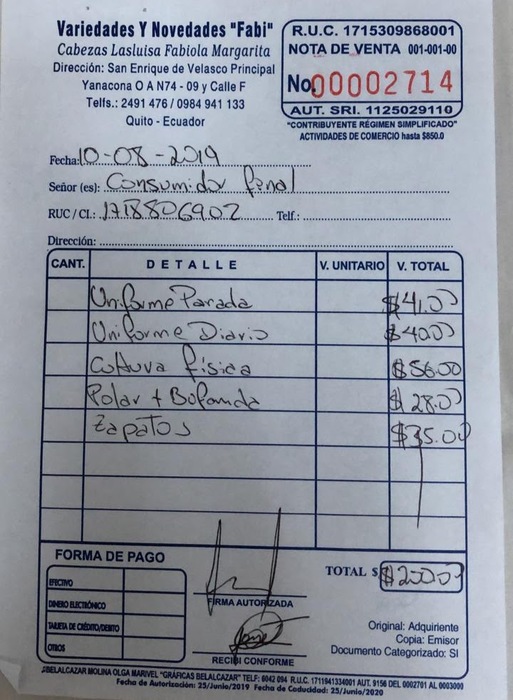 Variedades Y Novedades "Fabi"
Cabezas Lasluisa Fabiola Margarita
Dirección: San Enrique de Velasco Principal
Yanacona O A N74 - 09 y Calle F
Telfs.: 2491 476 / 0984 941 133
Quito - Ecuador
R.U.C. 1715309868001
NOTA DE VENTA 001-001-00
No. 00002714
AUT. SRI. 1125029110
"CONTRIBUYENTE RÉGIMEN SIMPLIFICADO"
ACTIVIDADES DE COMERCIO hasta $850.0
Fecha: 10-08-2019
Señor (es): Consumidor final
RUC / CI.: 1718806902 Telf.:
Dirección:
CANT. DETALLE V. UNITARIO V. TOTAL
Uniforme Parada $41.00
Uniforme Diario $40.00
Cultura física $56.00
Polar + Bufanda $28.00
Zapatos $35.00
FORMA DE PAGO
EFECTIVO
DINERO ELECTRÓNICO
TARJETA DE CRÉDITO/DEBITO
OTROS
FIRMA AUTORIZADA
RECIBI CONFORME
TOTAL $ $200.00
Original: Adquiriente
Copia: Emisor
Documento Categorizado: SI
BELALCAZAR MOLINA OLGA MARIVEL "GRÁFICAS BELALCAZAR" TELF: 6042 094 R.U.C. 1711941334001 AUT. 9156 DEL 0002701 AL 0003000
Fecha de Autorización: 25/Junio/2019 Fecha de Caducidad: 25/Junio/2020